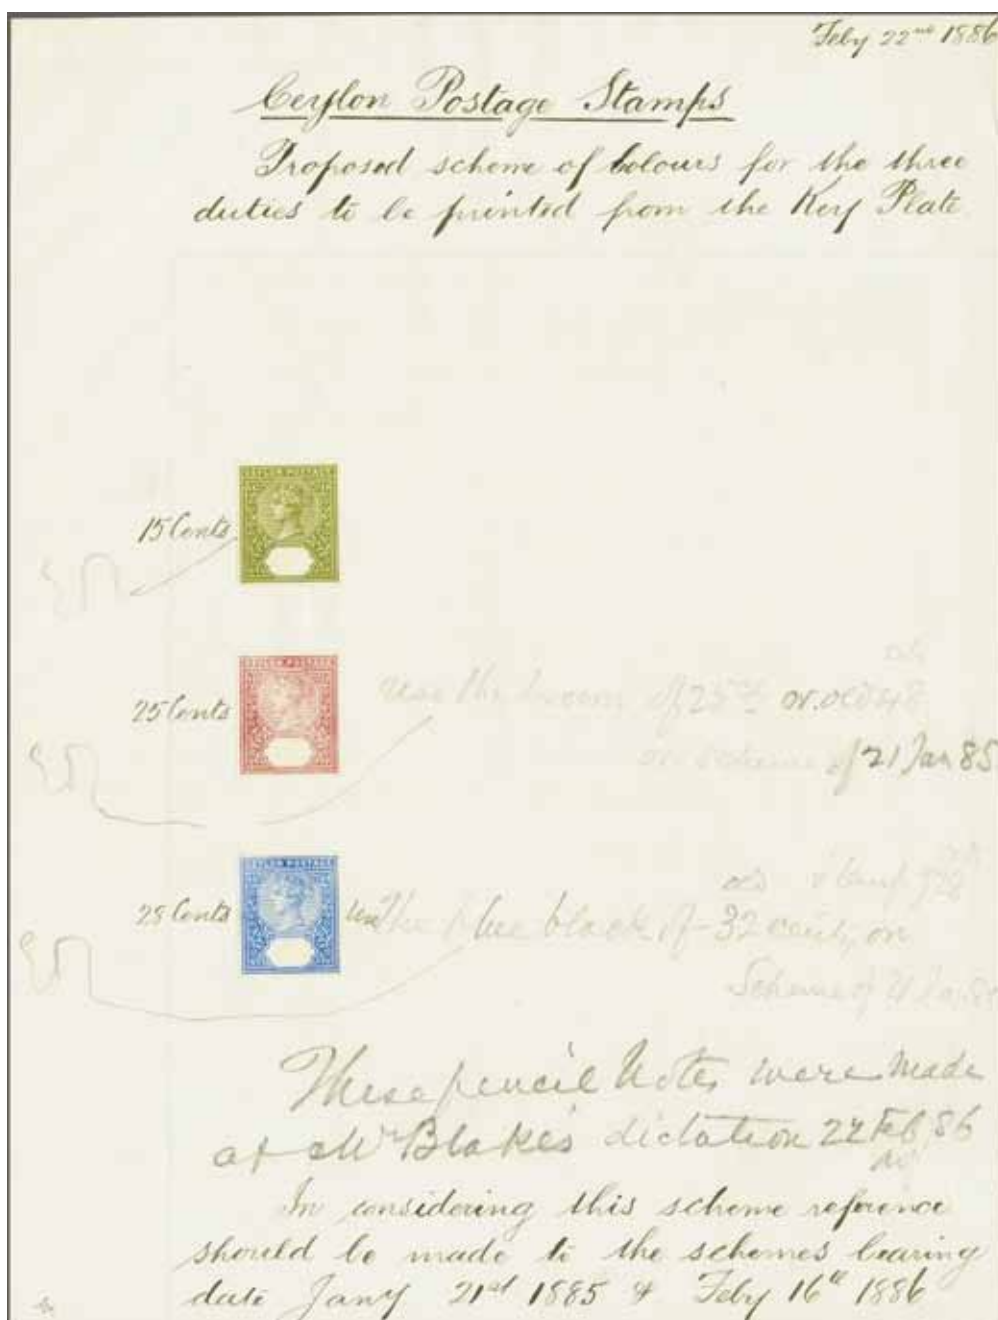 Feby 22nd 1886
Ceylon Postage Stamps
Proposed scheme of Colours for the three
duties to be printed from the Key Plate
CEYLON POSTAGE
15 Cents
CEYLON POSTAGE
25 Cents
Use the brown of 25 cts or old 48
on scheme of 21 Jan 85
CEYLON POSTAGE
28 Cents
Use the blue black of 32 cents, on
Scheme of 21 Jan 85
These pencil Notes were made
at Mr Blake's dictation 22 Feb 86
In considering this scheme reference
should be made to the schemes bearing
date Jany 21st 1885 & Feby 16th 1886